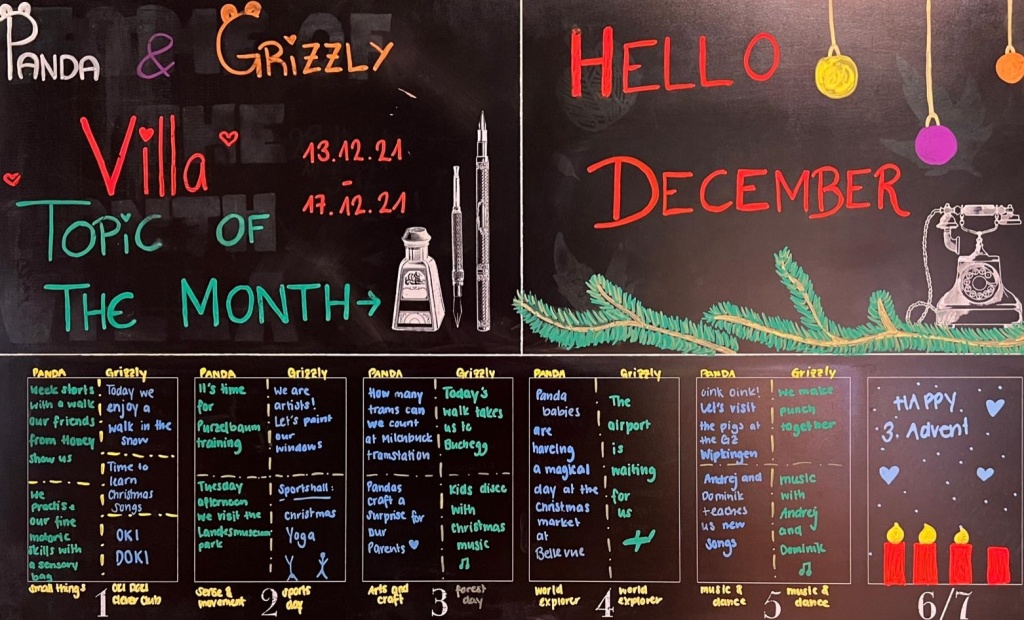 PANDA & GRiZZLY
Villa
13.12.21
-
17.12.21
TOPiC OF
THE MONTH→
HELLO
DECEMBER
PANDA
Week starts
with a walk
our friends
from Honey
show us
We
practise
our fine
motoric
skills with
a sensory
bag
small things
Grizzly
Today we
enjoy a
walk in the
snow
Time to
learn
Christmas
Songs
OKI
DOKI
OKI DOKI
clever club
1
PANDA
It's time
for
Purzelbaum
training
Tuesday
afternoon
we visit the
Landesmuseum
park
sense &
movement
Grizzly
We are
artists!
Let's paint
our
windows
Sportshall:
Christmas
Yoga
sports
day
2
PANDA
How many
trams can
we count
at Milchbuck
tramstation
Pandas
craft a
Surprise for
our
Parents
Arts and
craft
Grizzly
Today's
walk takes
us to
Buchegg
Kids disco
with
Christmas
music
forest
day
3
PANDA
Panda
babies
are
having
a magical
day at the
Christmas
market
at
Bellevue
world
explorer
Grizzly
The
airport
is
waiting
for
us
world
explorer
4
PANDA
oink oink!
Let's visit
the pigs at
the GZ
Wipkingen
Andrej and
Dominik
teaches
us new
songs
music &
dance
Grizzly
We make
punch
together
music
with
Andrej
and
Dominik
music &
dance
5
HAPPY
3. Advent
6/7